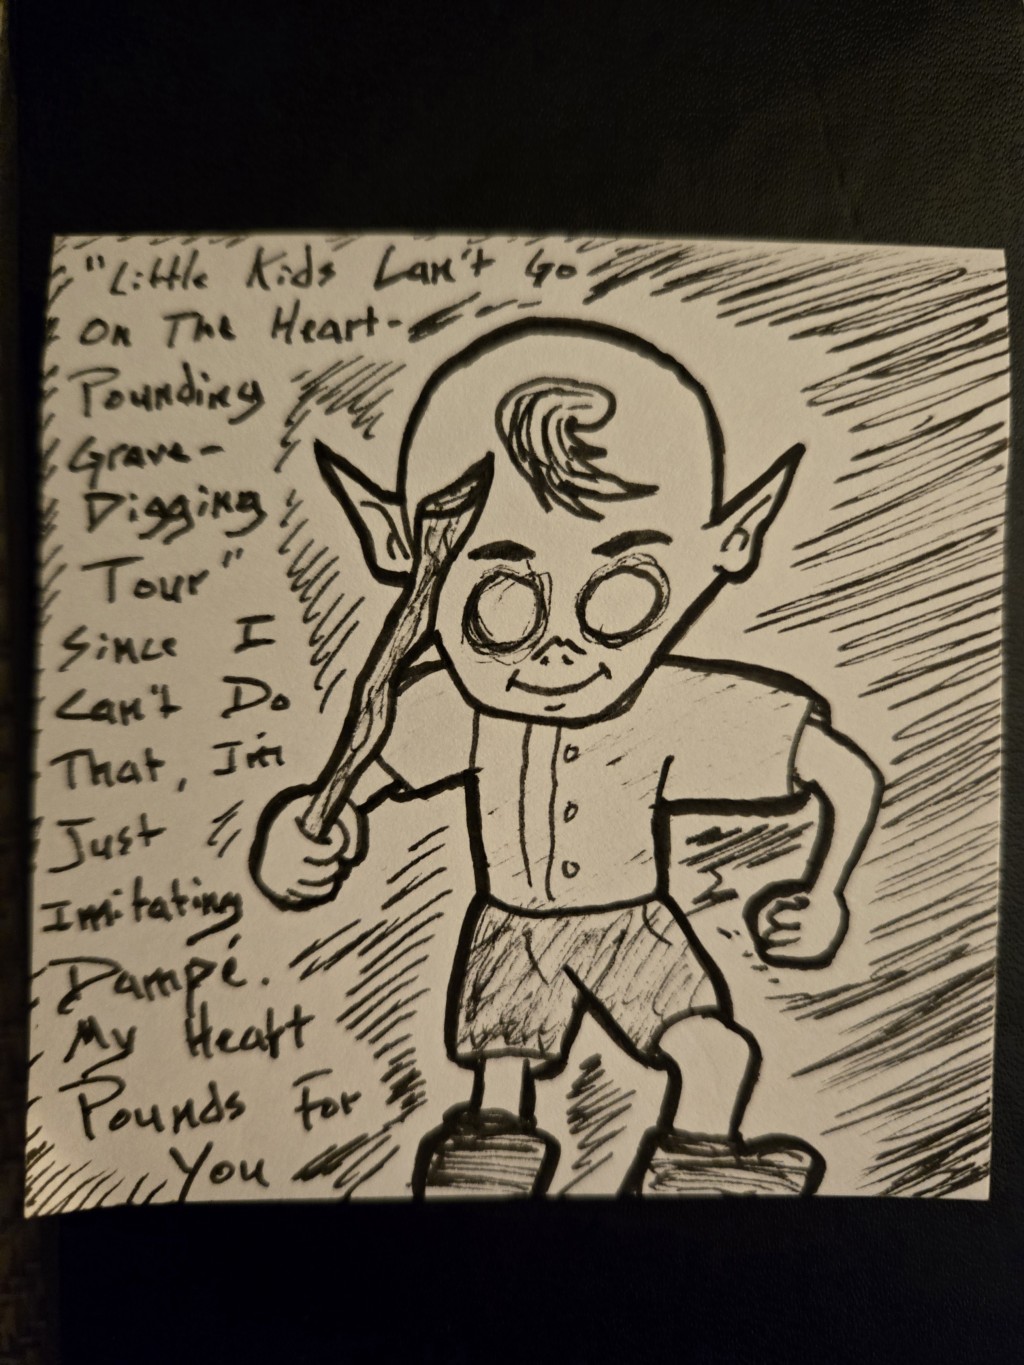 "Little Kids Can't Go
On The Heart-
Pounding
Grave-
Digging
Tour"
Since I
Can't Do
That, I'm
Just
Imitating
Dampé.
My Heart
Pounds For
You